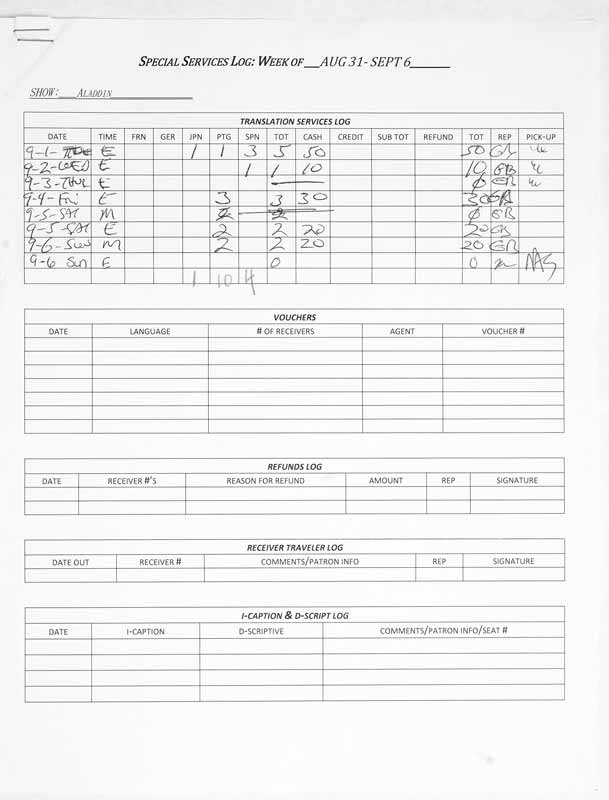 SPECIAL SERVICES LOG: WEEK OF __AUG 31- SEPT 6______
SHOW:___ALADDIN______________
TRANSLATION SERVICES LOG
DATE TIME FRN GER JPN PTG SPN TOT CASH CREDIT SUB TOT REFUND TOT REP PICK-UP
9-1- E 1 1 3 5 50 50 GB
9-2-WED E 1 1 10 10 GB
9-3-THU E 0 GB
9-4-Fri E 3 3 30 30 GB
9-5-SAT M 2 2 0 GB
9-5-SAT E 2 2 20 20 GB
9-6-Sun M 2 2 20 20 GB
9-6 Sun E 0 0
1 10 4
VOUCHERS
DATE LANGUAGE # OF RECEIVERS AGENT VOUCHER #
REFUNDS LOG
DATE RECEIVER #'S REASON FOR REFUND AMOUNT REP SIGNATURE
RECEIVER TRAVELER LOG
DATE OUT RECEIVER # COMMENTS/PATRON INFO REP SIGNATURE
I-CAPTION & D-SCRIPT LOG
DATE I-CAPTION D-SCRIPTIVE COMMENTS/PATRON INFO/SEAT #